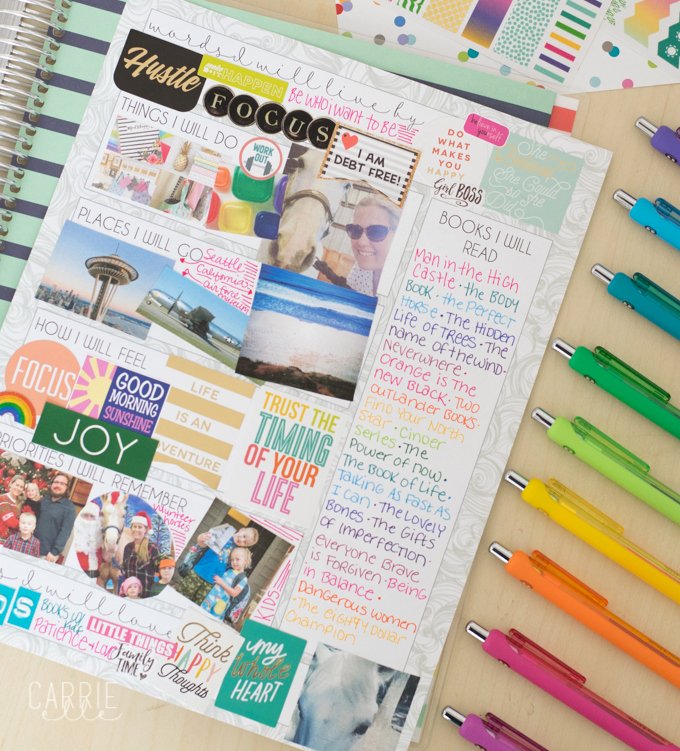 words I will live by
Hustle
make it
HAPPEN
FOCUS
Be who i want to Be
THINGS I WILL DO
WORK
OUT
I AM
DEBT FREE!
DO
WHAT
MAKES
YOU
HAPPY
Girl BOSS
believe in
yourself
She
Could
So She
Did
PLACES I WILL GO
Seattle
California
air Force
museum
HOW I WILL FEEL
FOCUS
GOOD
MORNING
SUNSHINE
JOY
LIFE
IS AN
VENTURE
TRUST THE
TIMING
OF YOUR
LIFE
PRIORITIES I WILL REMEMBER
volunteer
horses
KIDS
s I will love
DS
BOOKS
kids
Patience + Love
LITTLE THINGS
Family
TIME
Think
HAPPY
Thoughts
my
whole
HEART
BOOKS I WILL
READ
Man in the High
Castle • the BODY
BOOK • the Perfect
Horse • The Hidden
Life of Trees • The
name of the wind •
Neverwhere •
Orange is the
new Black • Two
Outlander Books •
Find Your North
Star • Cinder
Series • The
Power of Now •
The Book of Life •
Talking As Fast As
I Can • The Lovely
Bones • The Gifts
of Imperfection •
everyone Brave
is Forgiven • Being
in Balance •
Dangerous women
• The Eighty Dollar
Champion
CARRIE
elle